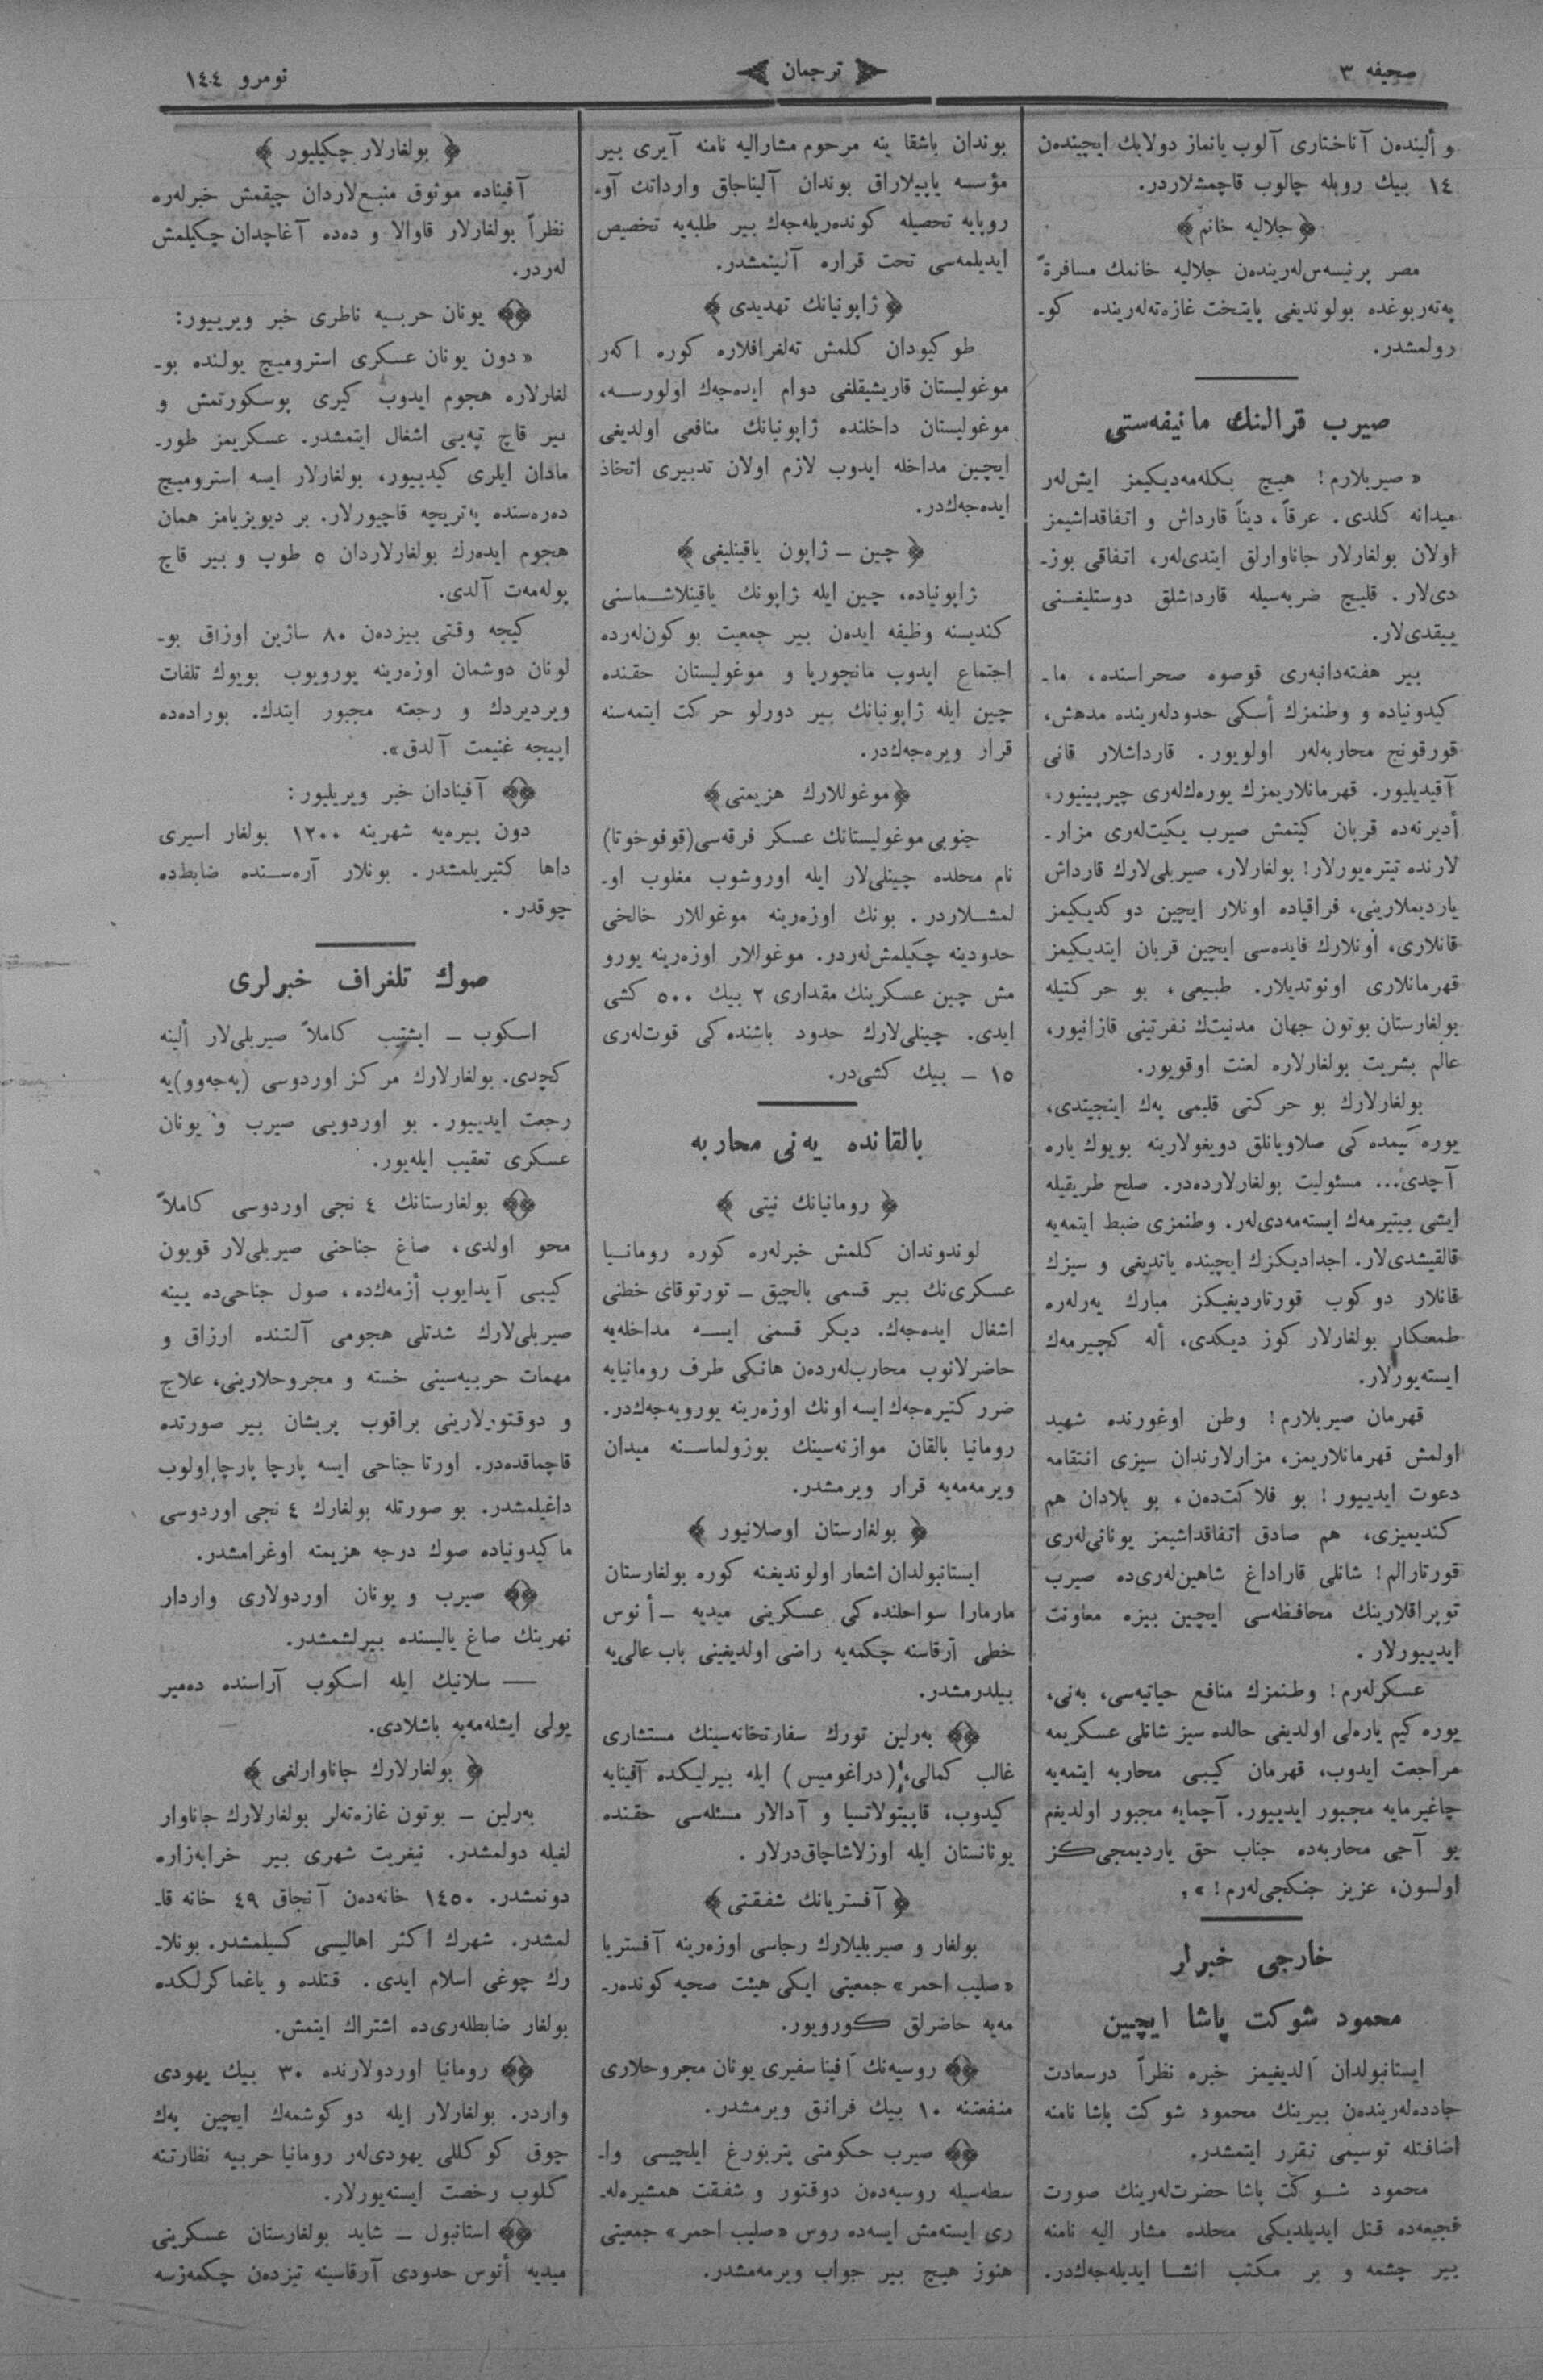 صحیفه ٣
ترجمان
نومرو ١٤٤
و ألیندەن آناختاری آلوب یانماز دولابك ایچیندەن
١٤ بیك روبله چالوب قاچمشلاردر.
﴿جلالیه خانم﴾
مصر پرنیسەس‌لەریندەن جلالیه خانمك مسافرةً
پەتەربوغده بولوندیغی پایتخت غازەتەلەریندە كو-
رولمشدر.
صیرب قرالنك مانیفەستی
« صیربلارم! هیچ بكلەمەدیكیمز ایش‌لەر
میدانه كلدی. عرقاً، دیناً قارداش و اتفاقداشیمز
اولان بولغارلار جاناوارلق ایتدی‌لەر، اتفاقی بوز-
دی‌لار. قلیچ ضربەسیله قارداشلق دوستلیغنی
ییقدی‌لار.
بیر هفتەدانبەری قوصوه صحراسنده، ما-
كیدونیاده و وطنمزك أسكی حدودلەرینده مدهش،
قورقونج محاربەلەر اولویور. قارداشلار قانی
آقیدیلیور. قهرمانلاریمزك یورەك‌لەری چیرپینیور،
أدیرنەده قربان كیتمش صیرب یكیت‌لەری مزار-
لارنده تیترەیورلار! بولغارلار، صیربلی‌لارك قارداش
یاردیملارینی، فراقیاده اونلار ایچین دوكدیكیمز
قانلاری، اونلارك فایدەسی ایچین قربان ایتدیكیمز
قهرمانلاری اونوتدیلار. طبیعی، بو حركتیله
بولغارستان بوتون جهان مدنیت‌ك نفرتینی قازانیور،
عالم بشریت بولغارلاره لعنت اوقویور.
بولغارلارك بو حركتی قلبمی پەك اینجیتدی،
یورەكیمدەكی صلاویانلق دویغولارینه بویوك یاره
آچدی... مسئولیت بولغارلاردەدر. صلح طریقیله
ایشی بیتیرمەك ایستەمەدی‌لەر. وطنمزی ضبط ایتمەیه
قالقیشدی‌لار. اجدادیكزك ایچینده یاتدیغی و سیزك
قانلار دوكوب قورتاردیغیكز مبارك یەرلەره
طمعكار بولغارلار كوز دیكدی، أله كچیرمەك
ایستەیورلار.
قهرمان صیربلارم! وطن اوغورنده شهید
اولمش قهرمانلاریمز، مزارلارندان سیزی انتقامه
دعوت ایدییور! بو فلاكت‌دەن، بو بلادان هم
كندیمیزی، هم صادق اتفاقداشیمز یونانی‌لەری
قورتارالم! شانلی قاراداغ شاهین‌لەری‌ده صیرب
توپراقلارینك محافظەسی ایچین بیزه معاونت
ایدییورلار.
عسكرلەرم! وطنمزك منافع حیاتیەسی، بەنی،
یورەكیم یارەلی اولدیغی حالده سیز شانلی عسكریمه
مراجعت ایدوب، قهرمان كیبی محاربه ایتمەیه
چاغیرمایه مجبور ایدییور. آچمایه مجبور اولدیغم
بو آجی محاربەده جناب حق یاردیمجی‌كز
اولسون، عزیز جنكجی‌لەرم! »,
خارجی خبرلر
محمود شوكت پاشا ایچین
ایستانبولدان آلدیغیمز خبره نظراً درسعادت
جاددەلەریندەن بیرینك محمود شوكت پاشا نامنه
اضافتله توسیمی تقرر ایتمشدر.
محمود شوكت پاشا حضرت‌لەرینك صورت
فجیعەده قتل ایدیلدیكی محلده مشار الیه نامنه
بیر چشمه و بر مكتب انشا ایدیلەجەك‌در.
بوندان باشقا ینه مرحوم مشارالیه نامنه آیری بیر
مؤسسه یاپیلاراق بوندان آلیناجاق وارداتك آو-
روپایه تحصیله كوندەریلەجەك بیر طلبەیه تخصیص
ایدیلمەسی تحت قراره آلینمشدر.
﴿ژاپونیانك تهدیدی﴾
طوكیودان كلمش تەلغرافلاره كوره اكەر
موغولیستان قاریشیقلغی دوام ایدەجەك اولورسه،
موغولیستان داخلنده ژاپونیانك منافعی اولدیغی
ایچین مداخله ایدوب لازم اولان تدبیری اتخاذ
ایدەجەك‌در.
﴿چین – ژاپون یاقینلیغی﴾
ژاپونیاده، چین ایله ژاپونك یاقینلاشماسنی
كندیسنه وظیفه ایدەن بیر جمعیت بوكون‌لەرده
اجتماع ایدوب مانجوریا و موغولیستان حقنده
چین ایله ژاپونیانك بیر دورلو حركت ایتمەسنه
قرار ویرەجەك‌در.
﴿موغوللارك هزیمتی﴾
جنوبی موغولیستانك عسكر فرقەسی(قوقوخوتا)
نام محلده چینلی‌لار ایله اوروشوب مغلوب او-
لمشلاردر. بونك اوزەرینه موغوللار خالخی
حدودینه چكیلمش‌لەردر. موغوللار اوزەرینه یورو
مش چین عسكرینك مقداری ٢ بیك ٥٠٠ كشی
ایدی. چینلی‌لارك حدود باشندەكی قوت‌لەری
١٥ – بیك كشی‌در.
بالقانده یەنی محاربه
﴿رومانیانك نیتی﴾
لوندوندان كلمش خبرلەره كوره رومانیا
عسكری‌نك بیر قسمی بالچیق – تورتوقای خطنی
اشغال ایدەجەك. دیكر قسمی ایسه مداخلەیه
حاضرلانوب محارب‌لەردەن هانكی طرف رومانیایه
ضرر كتیرەجەك ایسه اونك اوزەرینه یورویەجەك‌در.
رومانیا بالقان موازنەسینك بوزولماسنه میدان
ویرمەمەیه قرار ویرمشدر.
﴿بولغارستان اوصلانیور﴾
ایستانبولدان اشعار اولوندیغنه كوره بولغارستان
مارمارا سواحلندەكی عسكرینی میدیه – أنوس
خطی آرقاسنه چكمەیه راضی اولدیغینی باب عالی‌یه
بیلدرمشدر.
بەرلین تورك سفارتخانەسینك مستشاری
غالب كمالی، (دراغومیس) ایله بیرلیكده آفینایه
كیدوب، قاپیتولاتسیا و آدالار مسئلەسی حقنده
یونانستان ایله اوزلاشاچاق‌درلار.
﴿آفستریانك شفقتی﴾
بولغار و صیربلیلارك رجاسی اوزەرینه آفستریا
«صلیب احمر» جمعیتی ایكی هیئت صحیه كوندەر-
مەیه حاضرلق كورویور.
روسیەنك آفینا سفیری یونان مجروحلاری
منفعتنه ١٠ بیك فرانق ویرمشدر.
صیرب حكومتی پتربورغ ایلچیسی وا-
سطەسیله روسیەدەن دوقتور و شفقت همشیرەلە-
ری ایستەمش ایسەده روس «صلیب احمر» جمعیتی
هنوز هیچ بیر جواب ویرمەمشدر.
﴿بولغارلار چكیلیور﴾
آفیناده موثوق منبع‌لاردان چیقمش خبرلەره
نظراً بولغارلار قاوالا و دەده آغاچدان چكیلمش
لەردر.
یونان حربیه ناظری خبر ویرییور:
« دون یونان عسكری استرومیچ یولنده بو-
لغارلاره هجوم ایدوب كیری پوسكورتمش و
بیر قاچ تپەیی اشغال ایتمشدر. عسكریمز طور-
مادان ایلری كیدییور، بولغارلار ایسه استرومیچ
دەرەسنده پەتریچه قاچیورلار. بر دیویزیامز همان
هجوم ایدەرك بولغارلاردان ٥ طوپ و بیر قاچ
پولەمەت آلدی.
كیجه وقتی بیزدەن ٨٠ ساژین اوزاق بو-
لونان دوشمان اوزەرینه یورویوب بویوك تلفات
ویردیردك و رجعته مجبور ایتدك. بورادەده
اپیجه غنیمت آلدق».
آفینادان خبر ویریلیور:
دون پیرەیه شهرینه ١٢٠٠ بولغار اسیری
داها كتیریلمشدر. بونلار آرەسنده ضابطده
چوقدر.
صوك تلغراف خبرلری
اسكوب – ایشتیب كاملاً صیربلی‌لار ألینه
كچدی. بولغارلارك مركز اوردوسی (پەجەوو)یه
رجعت ایدییور. بو اوردویی صیرب و یونان
عسكری تعقیب ایلەیور.
بولغارستانك ٤ نجی اوردوسی كاملاً
محو اولدی، صاغ جناحنی صیربلی‌لار قویون
كیبی آیدایوب أزمەكده، صول جناحی‌ده یینه
صیربلی‌لارك شدتلی هجومی آلتنده ارزاق و
مهمات حربیەسینی خسته و مجروحلارینی، علاج
و دوقتورلارینی براقوب پریشان بیر صورتده
قاچماقدەدر. اورتا جناحی ایسه پارچا پارچا اولوب
داغیلمشدر. بو صورتله بولغارك ٤ نجی اوردوسی
ماكیدونیاده صوك درجه هزیمته اوغرامشدر.
صیرب و یونان اوردولاری واردار
نهرینك صاغ یالیسنده بیرلشمشدر.
— سلانیك ایله اسكوب آراسنده دەمیر
یولی ایشلەمەیه باشلادی.
﴿بولغارلارك جاناوارلغی﴾
بەرلین – بوتون غازەتەلر بولغارلارك جاناوار
لغیله دولمشدر. نیغریت شهری بیر خرابەزاره
دونمشدر. ١٤٥٠ خانەدەن آنجاق ٤٩ خانه قا-
لمشدر. شهرك اكثر اهالیسی كسیلمشدر. بونلا-
رك چوغی اسلام ایدی. قتلده و یاغماكرلكده
بولغار ضابطلەری‌ده اشتراك ایتمش.
رومانیا اوردولارنده ٣٠ بیك یهودی
واردر. بولغارلار ایله دوكوشمەك ایچین پەك
چوق كوكللی یهودی‌لەر رومانیا حربیه نظارتنه
كلوب رخصت ایستەیورلار.
استانبول – شاید بولغارستان عسكرینی
میدیه أنوس حدودی آرقاسینه تیزدەن چكمەزسه